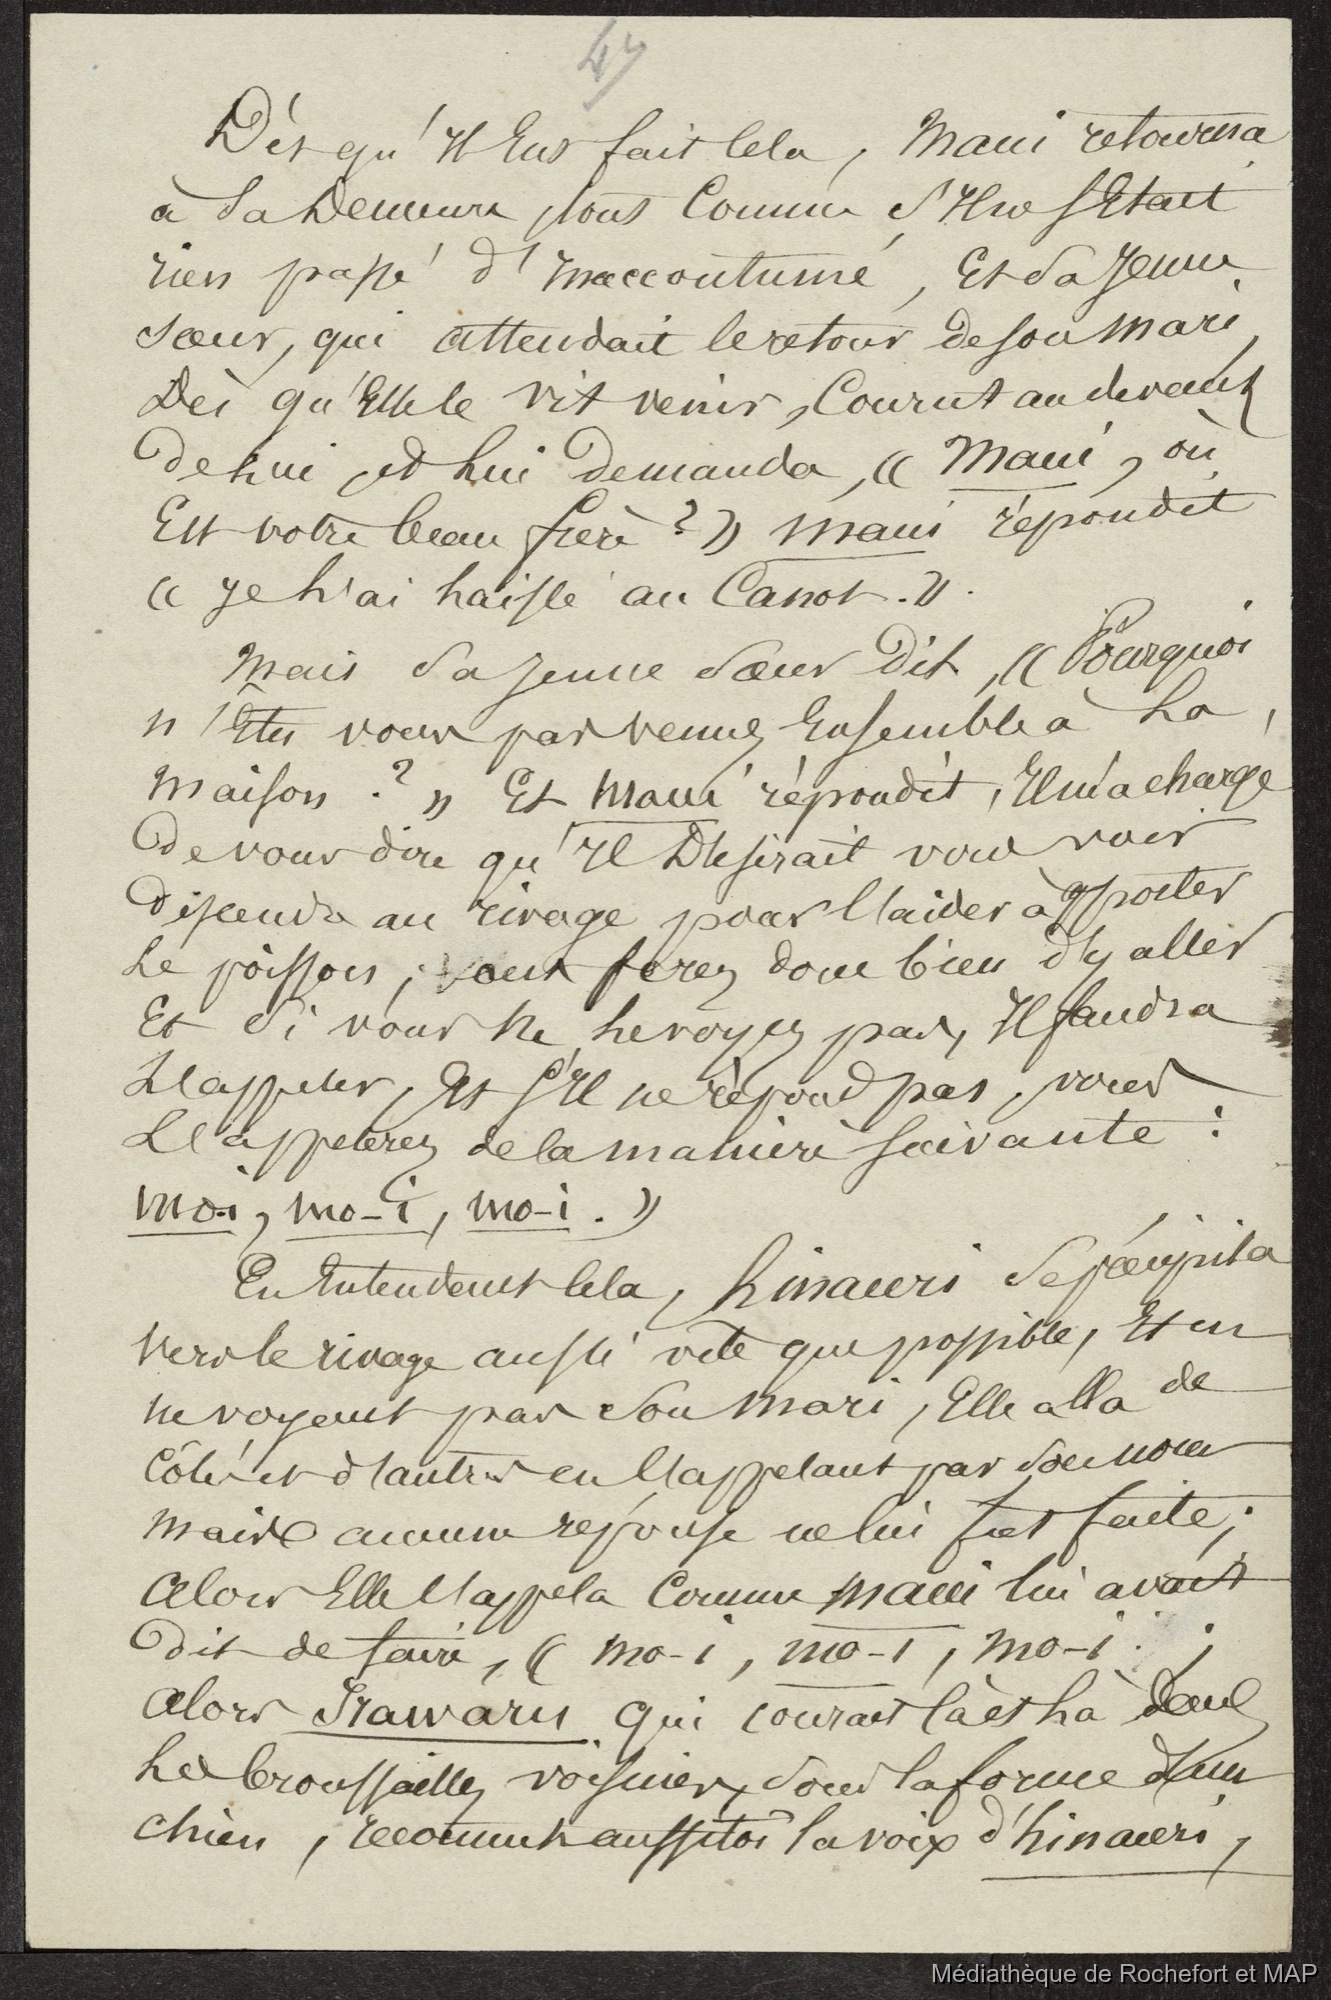 47
Dès qu'Il Eut fait Cela, Maui retourna
à Sa Demeure, tout Comme S'Il ne S'Etait
rien passé d'Inaccoutumé, Et Sa Jeune
Sœur, qui attendait le retour de son Mari,
Dès qu'Elle le vit venir, Courut au devant
de Lui et Lui Demanda, « Maui, où
Est votre beau frère ? » Maui répondit
« Je L'ai Laissé au Canot. ».
Mais Sa Jeune Sœur Dit, « Pourquoi
n'Etes vous pas venus Ensemble à La
Maison ? » Et Maui répondit, Il m'a chargé
De vous dire qu'Il Désirait vous voir
Descendre au rivage pour l'aider à apporter
Le poisson ; vous ferez donc bien d'y aller
Et Si vous Ne Le voyez pas, Il faudra
L'appeler, Et S'Il ne répond pas, vous
L'appelerez de la manière suivante :
Mo-i, Mo-i, Mo-i. »
En Entendant Cela, Hinauri Se précipita
Vers le rivage aussi vite que possible, Et en
ne voyant pas Son Mari, Elle alla de
Côté et d'autres en l'appelant par Son nom
Mais aucune réponse ne lui fut faite ;
Alors Elle l'appela Comme Maui lui avait
Dit de faire, « Mo-i, Mo-i, Mo-i. ;
Alors Irawaru qui courait là et Là dans
Les broussailles voisines, Sous la forme d'un
chien, reconnut aussitôt la voix d'Hinauri,
Médiathèque de Rochefort et MAP